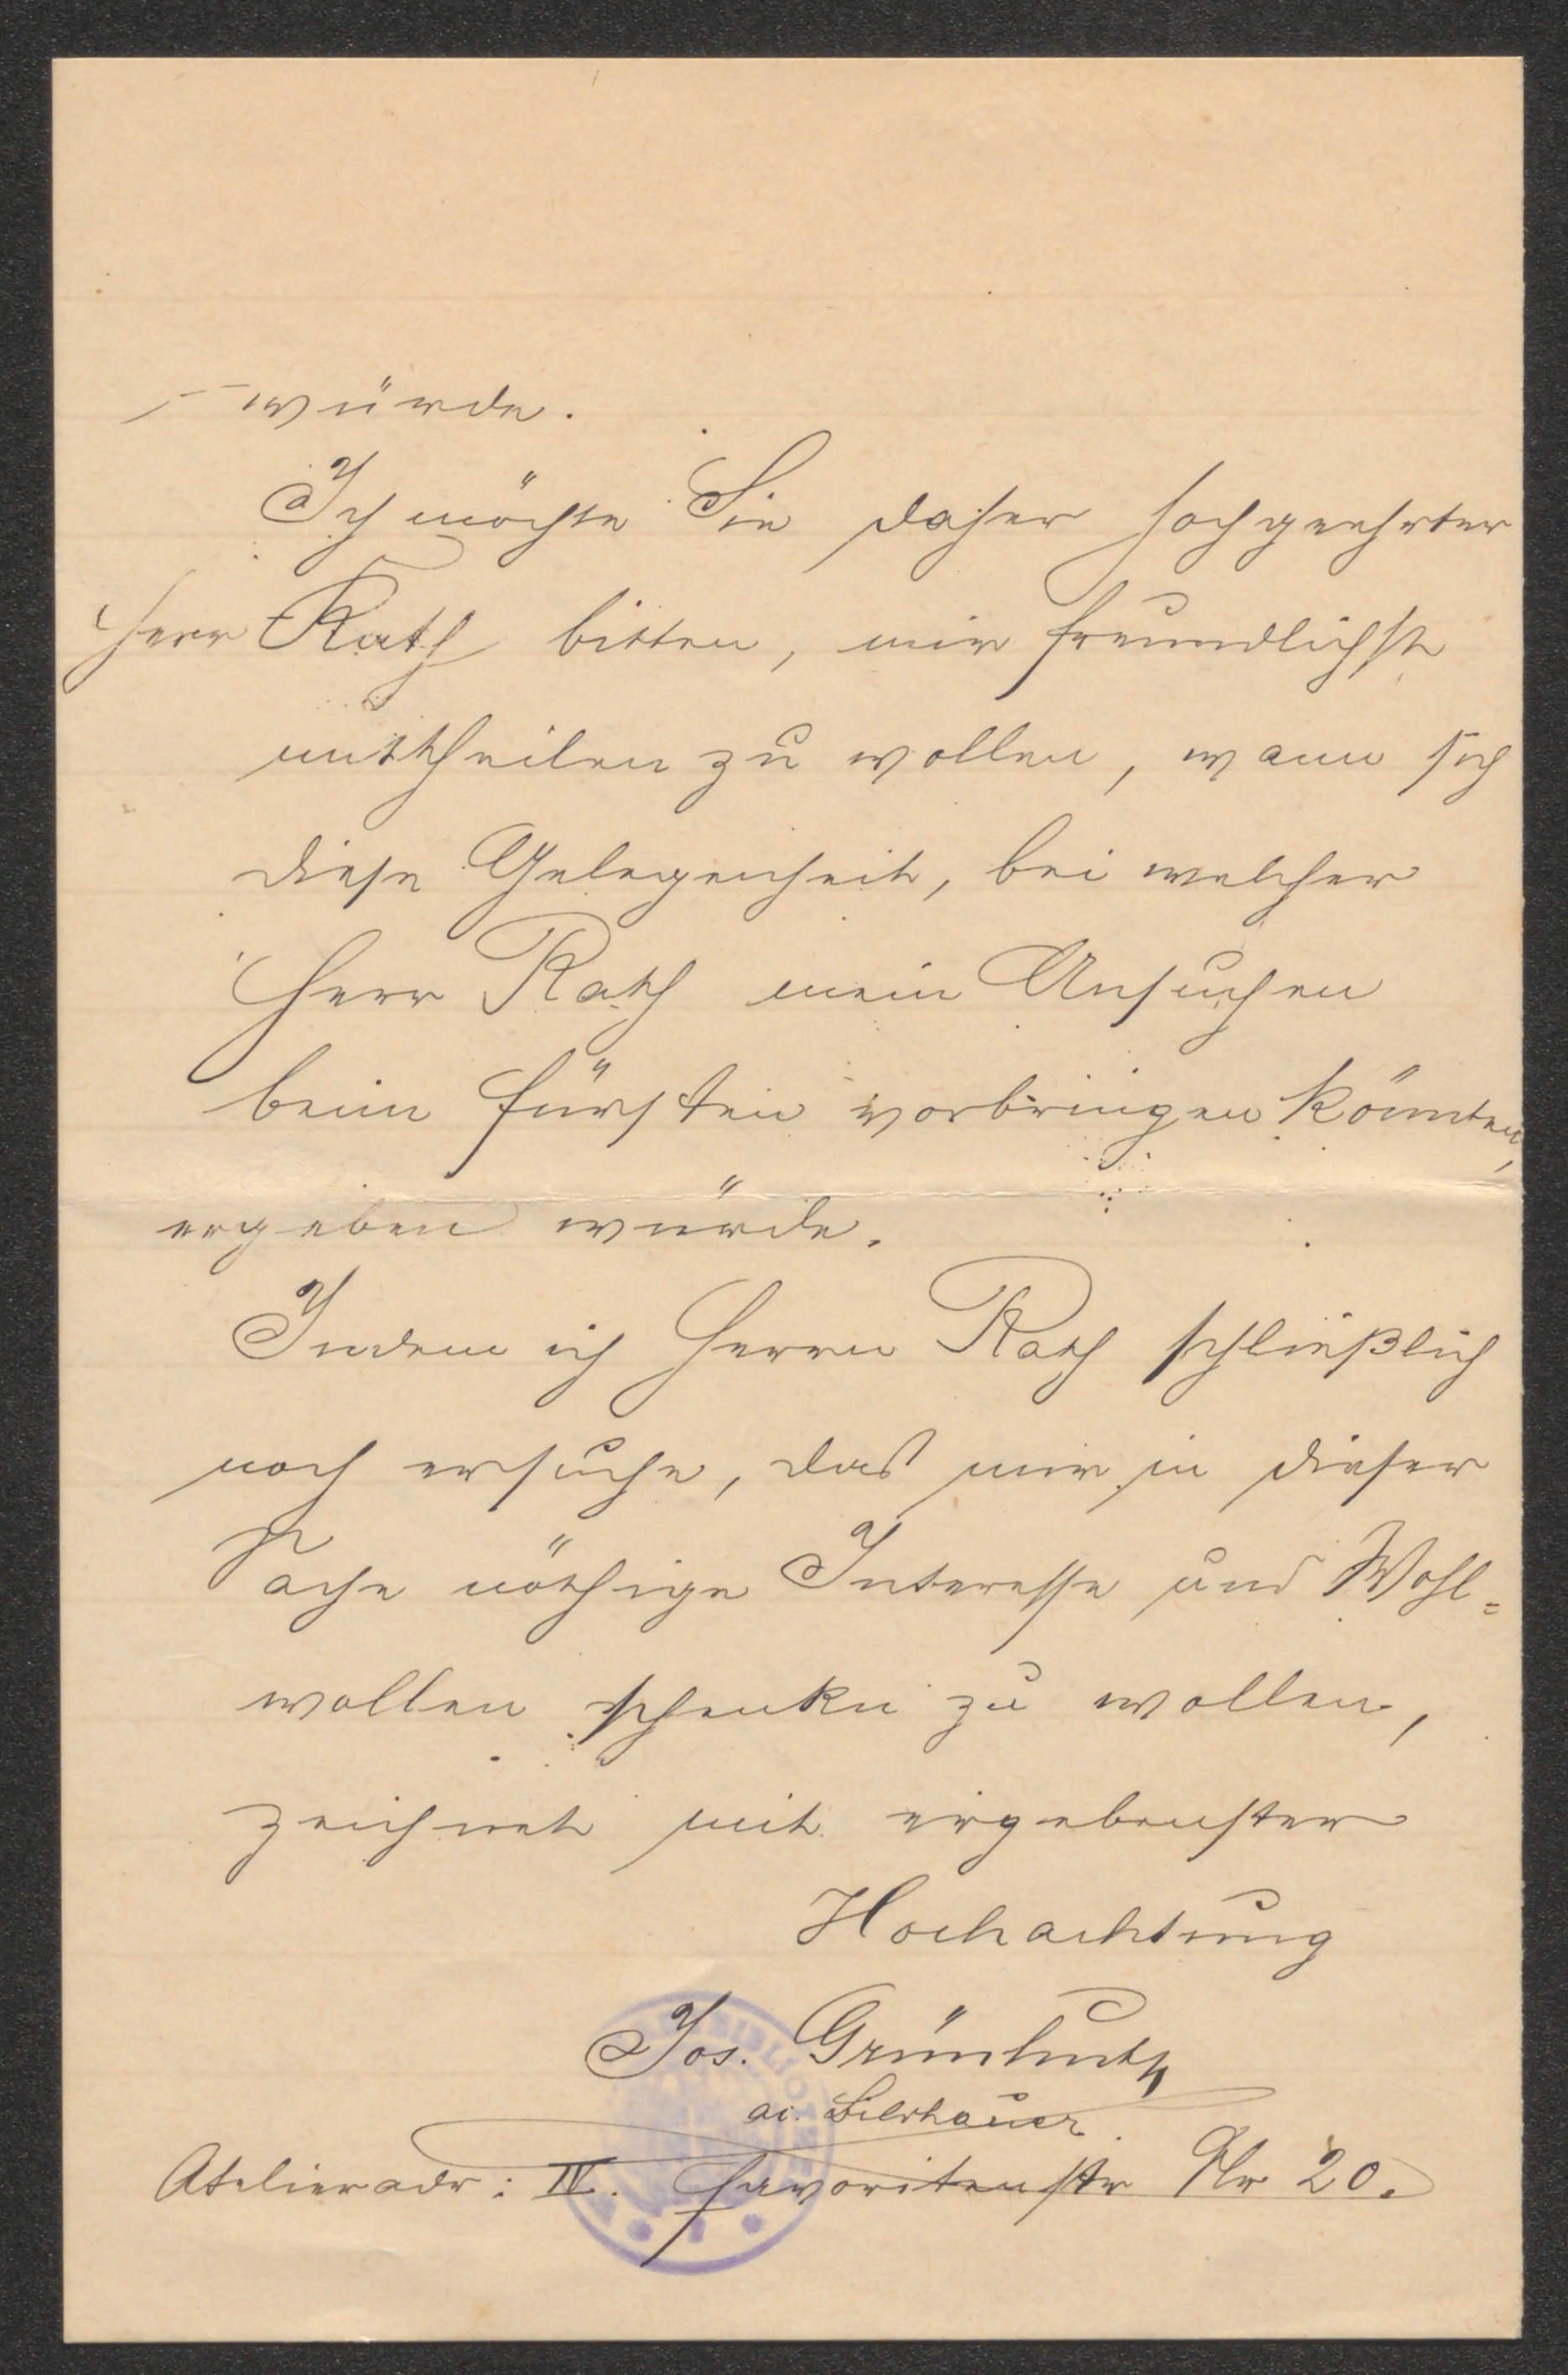 würde.
Ich möchte Sie daher hochgeehrter
Herr Rath bitten, mir freundlichst
mittheilen zu wollen, wann sich
diese Gelegenheit, bei welcher
Herr Rath mein Ansuchen
beim Fürsten vorbringen könnten,
ergeben würde.
Indem ich Herrn Rath schließlich
noch ersuche, das mir in dieser
Sache nöthige Interesse und Wohl=
wollen schenken zu wollen,
zeichnet mit ergebenster
Hochachtung
Jos. Grünhut
ac. Bildhauer.
Atelieradr: IV. Favoritenstr Nr 20.